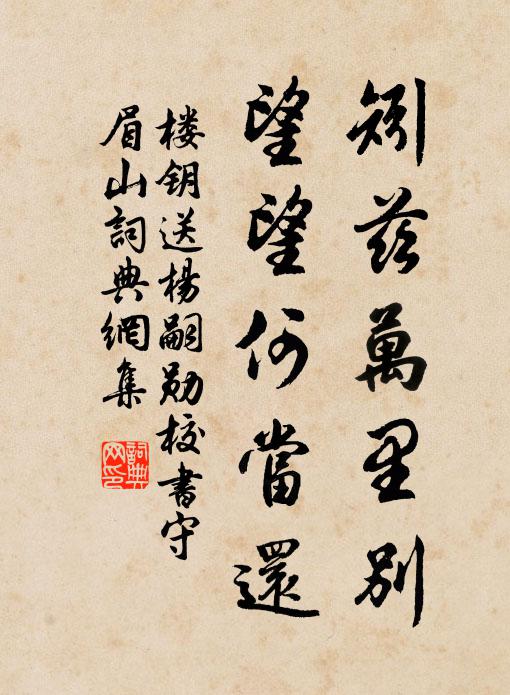 矧兹萬里别
望望何當還
楼钥送楊嗣勋校書守
眉山詞典網集
詞典网印